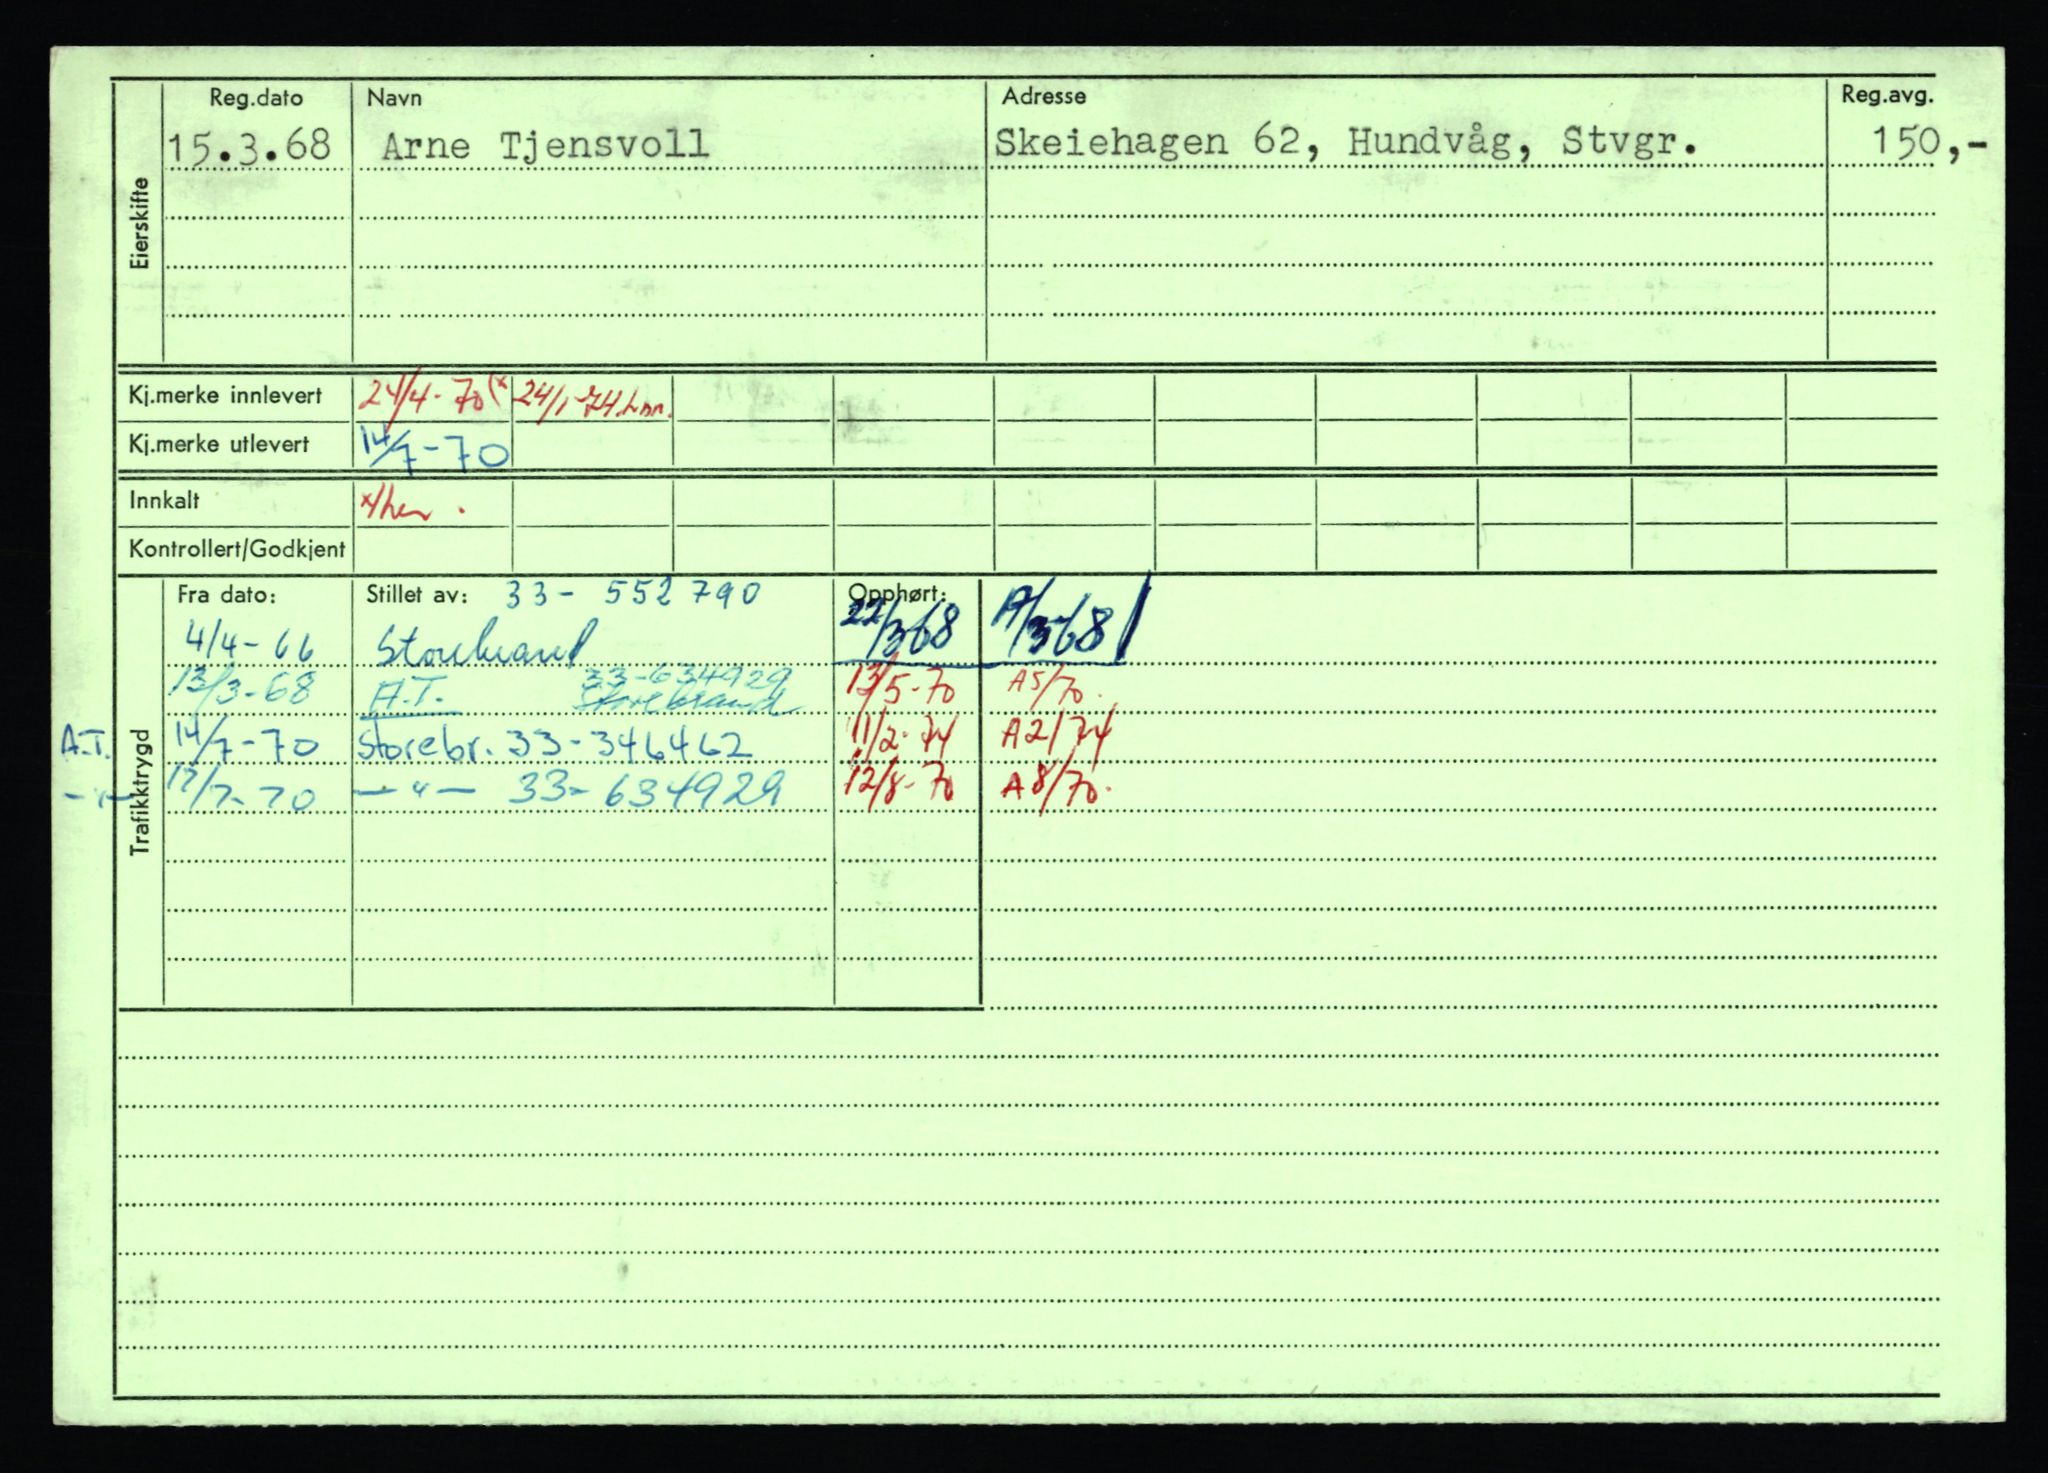 Reg.dato Navn Adresse Reg.avg.
Eierskifte
15.3.68 Arne Tjensvoll Skeiehagen 62, Hundvåg, Stvgr. 150,-
Kj.merke innlevert 24/4-70 (x 24/1-74
Kj.merke utlevert 14/7-70
Innkalt
Kontrollert/Godkjent
Trafikktrygd
Fra dato: Stillet av: 33-552790 Opphørt:
4/4-66 Storebrand 22/3 68 A/3-68
33-634929
13/3-68 A.T. Storebrand 13/5-70 A5/70.
A.T. 14/7-70 Storebr. 33-346462 11/2-74 A2/74
-"- 17/7-70 -"- 33-634929 12/8-70 A8/70.